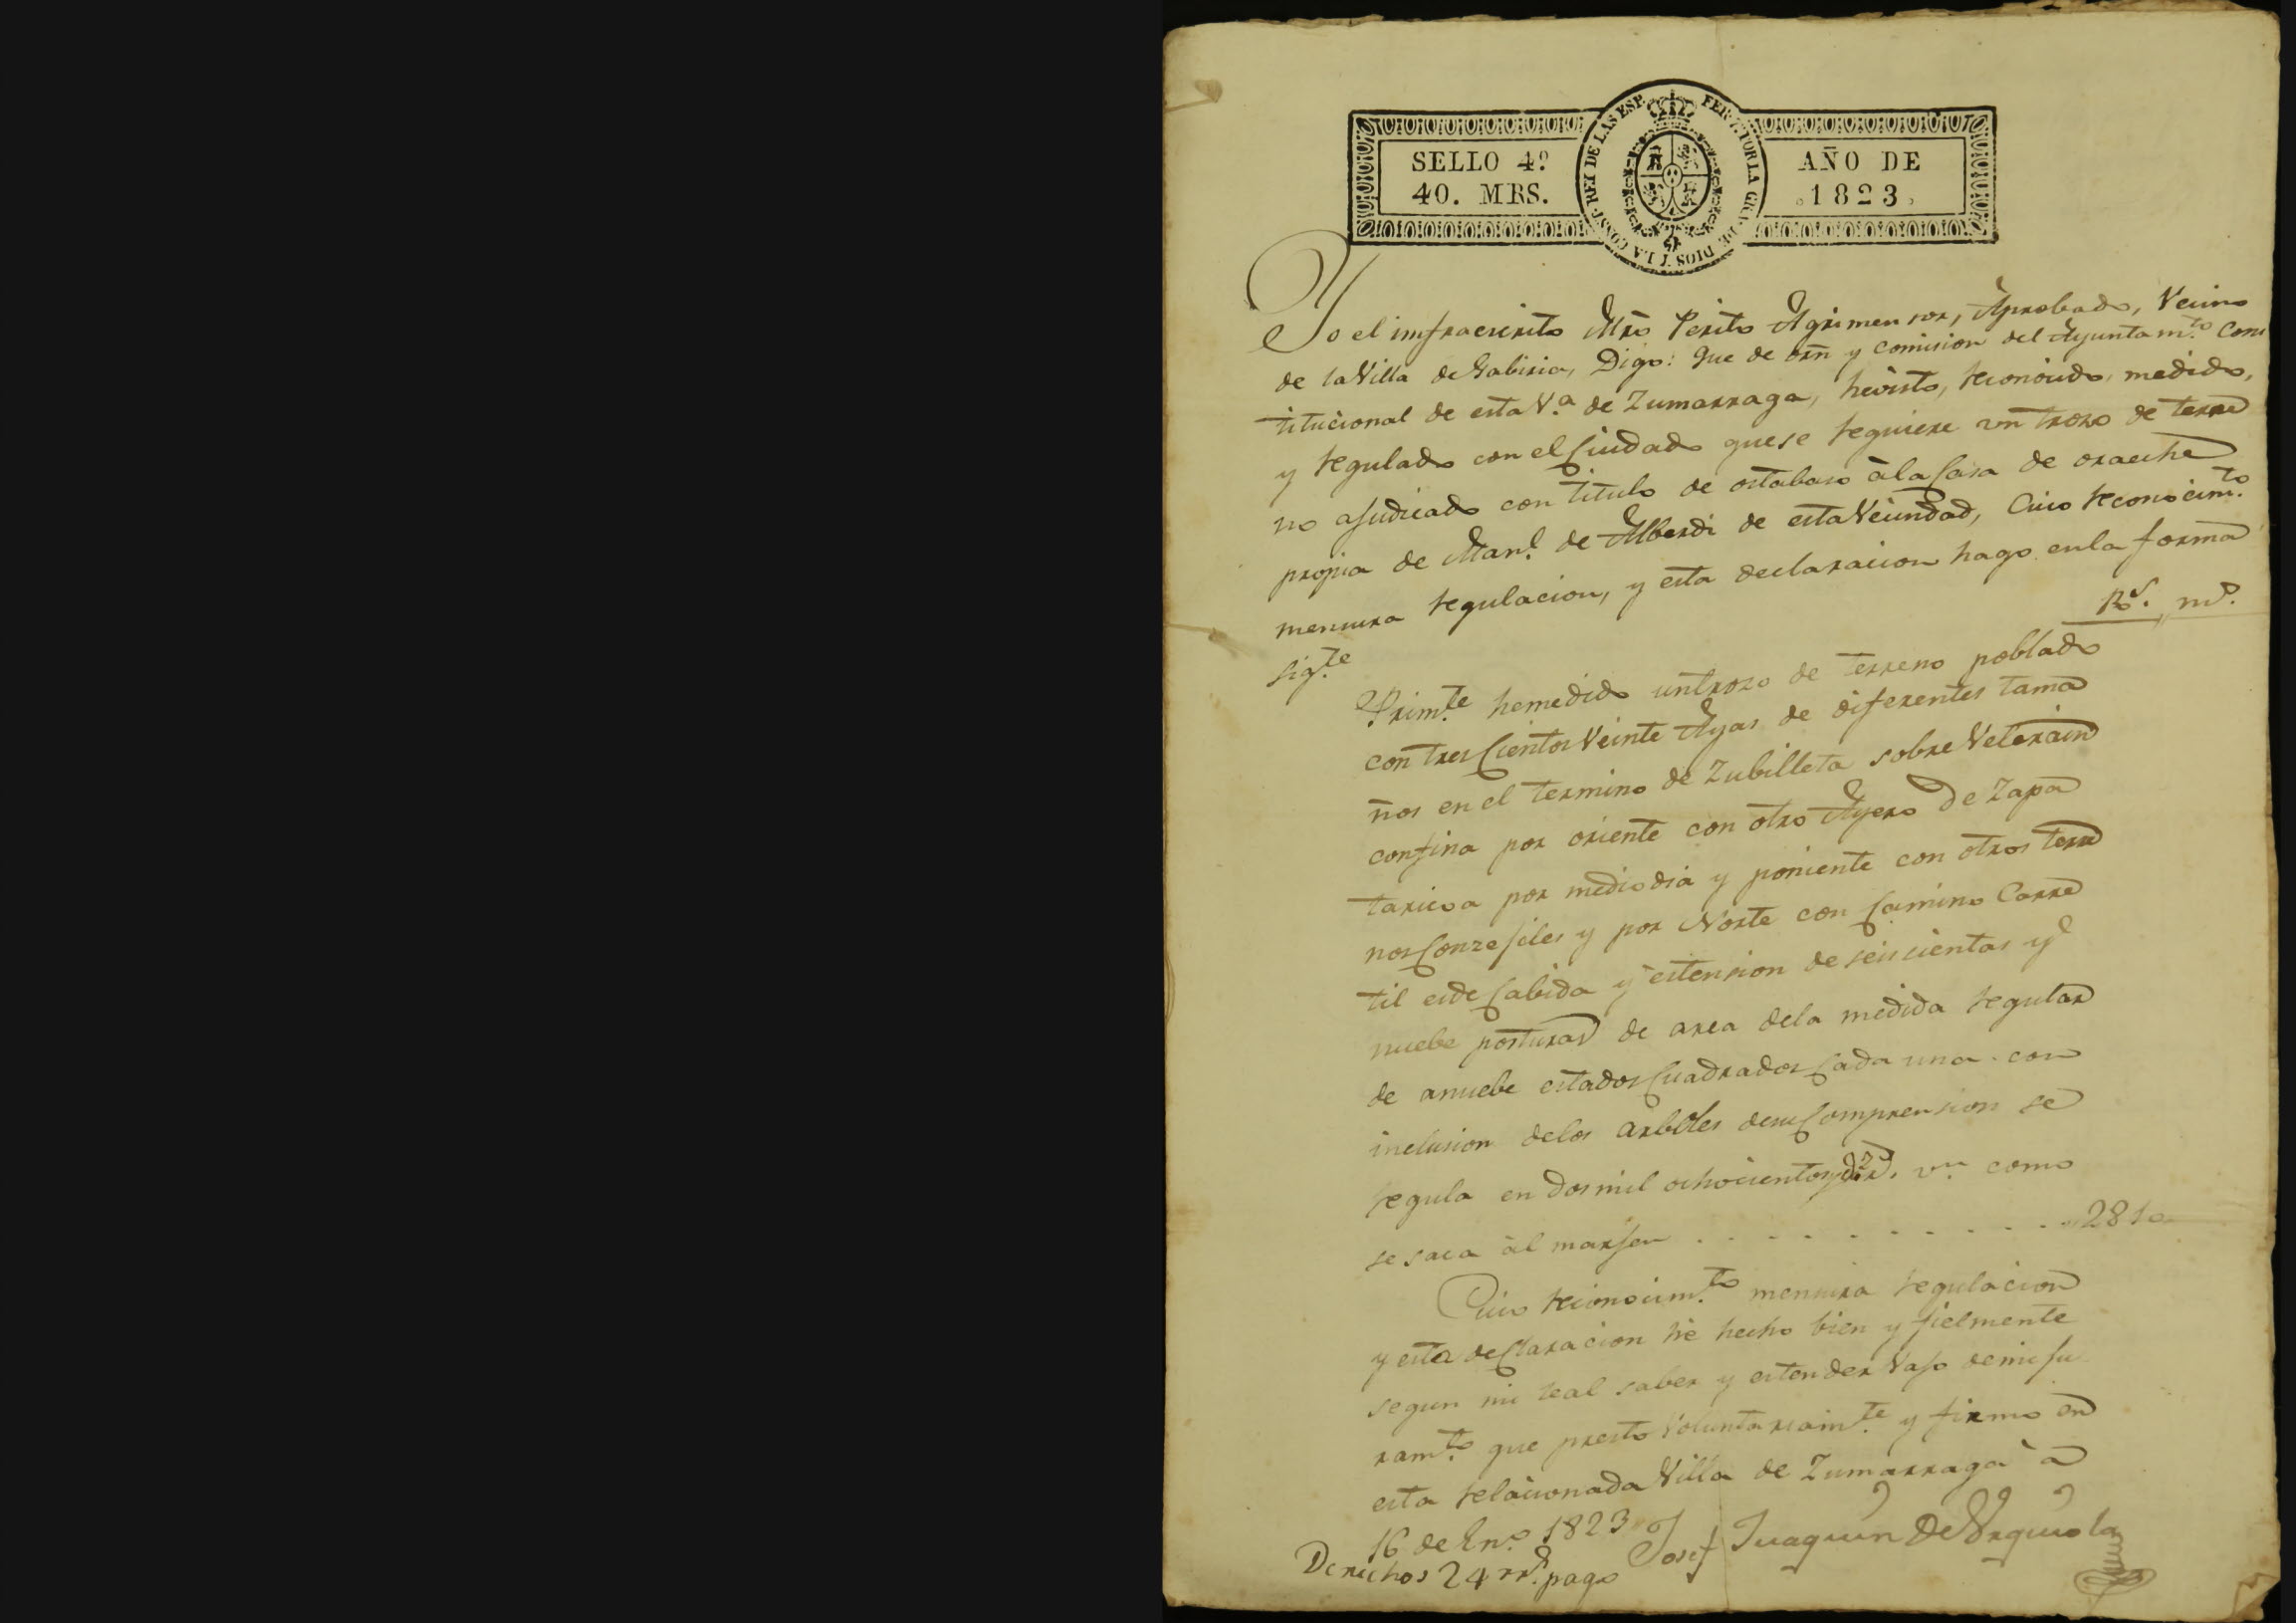 SELLO 4º
40. MRS.
FER. 7. POR LA GRA. DE DIOS Y LA CONST. REY DE LAS ESP.
AÑO DE
1823
Yo el infraescrito Mro Perito Agrimensor, Aprobado, Vecino
de la Villa de Gabiria, Digo: Que de orn y comision del Ayuntam.to Cons
titucional de esta V.a de Zumarraga, he visto, reconocido, medido,
y regulado con el Cuidado que se requiere un trozo de terre
no ajudicado con titulo de ostabaso à la Casa de oraeche
propia de Man.l de Alberdi de esta Vecindad, Cuio reconocim.to
mensura regulacion, y esta declaracion hago en la forma
sig.te
R.s m.s
Prim.te he medido un trozo de terreno poblado
con tres Cientos Veinte Ayas de diferentes tama
ños en el termino de Zubilleta sobre Veterain
confina por oriente con otro Ayero de Zapa
taricoa por mediodia y poniente con otros terre
nos Conzejiles y por Norte con Camino Carre
til es de Cabida y estension de seiscientas y
nuebe posturas de area de la medida regular
de a nuebe estados Cuadrados Cada una con
inclusion de los arboles de su Comprension se
regula en dos mil ochocientos y diez r.s v.n como
se saca àl marjen . . . . . . . . . . 2810
Cuio reconocim.to mensura regulacion
y esta declaracion hè hecho bien y fielmente
segun mi leal saber y estender Vajo de mi ju
ram.to que presto Voluntariam.te y firmo en
esta relacionada Villa de Zumarraga à
16 de En.o 1823
Josef Juaquin De Urquiola
Derechos 24 rr.s pago